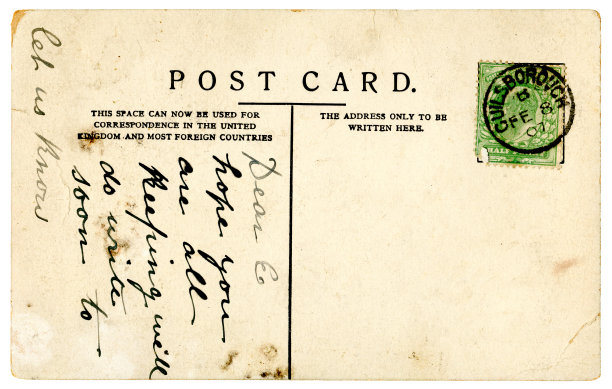 POST CARD.
THIS SPACE CAN NOW BE USED FOR
CORRESPONDENCE IN THE UNITED
KINGDOM AND MOST FOREIGN COUNTRIES
THE ADDRESS ONLY TO BE
WRITTEN HERE.
GUILSBOROUGH
FE 8
07
HALF
Dear E
hope you
are all
Keeping well
do write
soon to
let us know